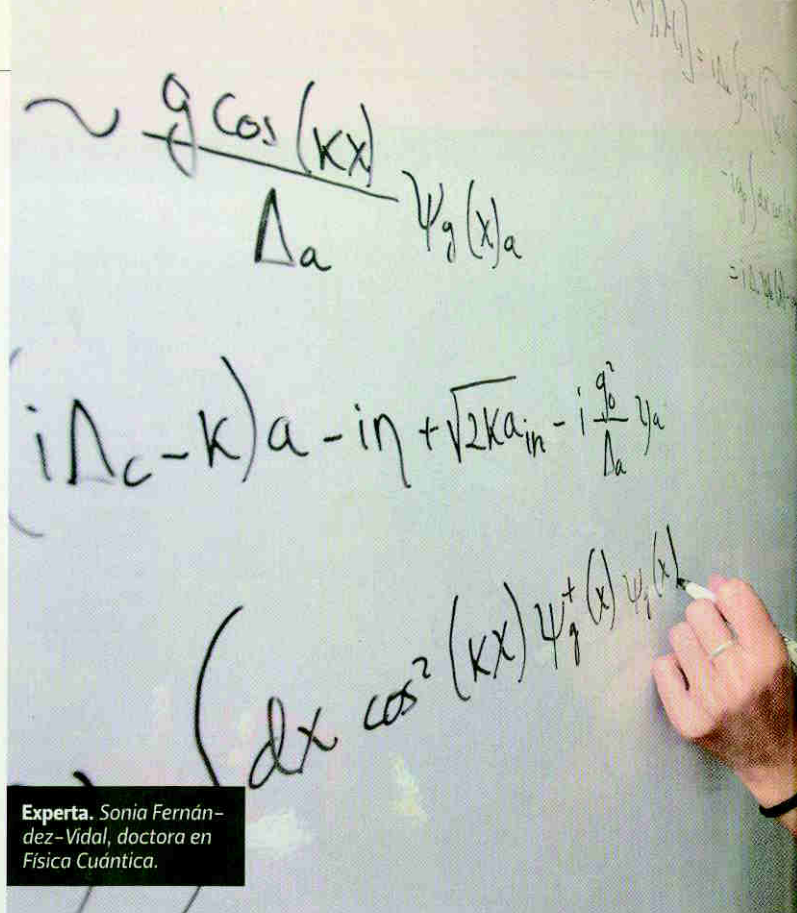 ~ g cos (kx)
Δa ψg(x)a
(iΔc - K)a - iη + √2Ka in - i g₀²
Δa
∫dx cos² (kx) ψg⁺(x) ψg(x)
Experta. Sonia Fernán-
dez-Vidal, doctora en
Física Cuántica.